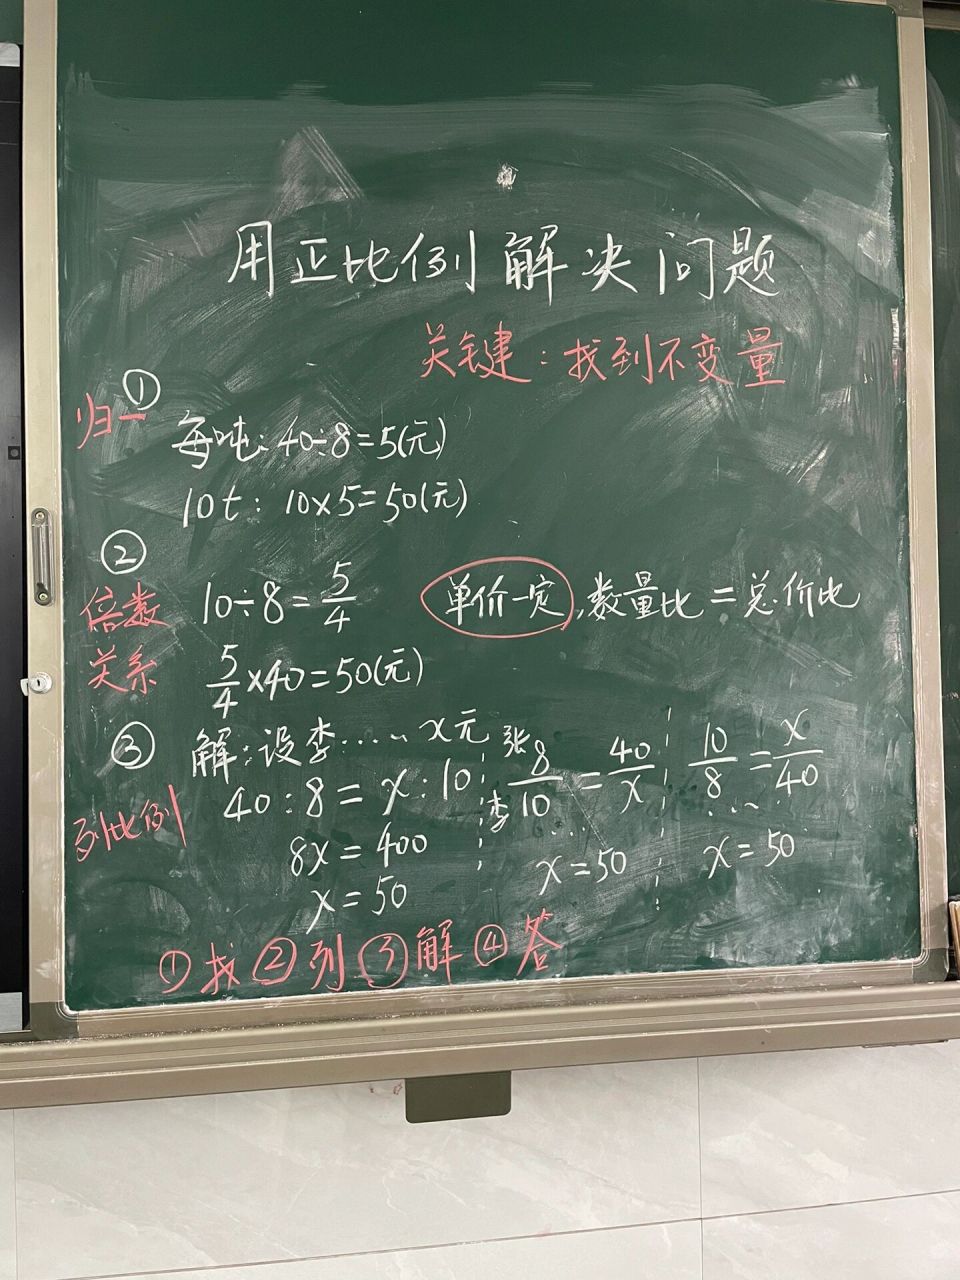 用正比例解决问题
关键:找到不变量
①
归一
每吨:40÷8=5(元)
10t: 10×5=50(元)
②
倍数
关系
10÷8=5/4
单价一定,数量比=总价比
5/4×40=50(元)
③
列比例
解:设李····· x元
40:8=x:10
8x=400
x=50
张 8/李 10=40/x
···
x=50
10/8=x/40
···
x=50
①找②列③解④答